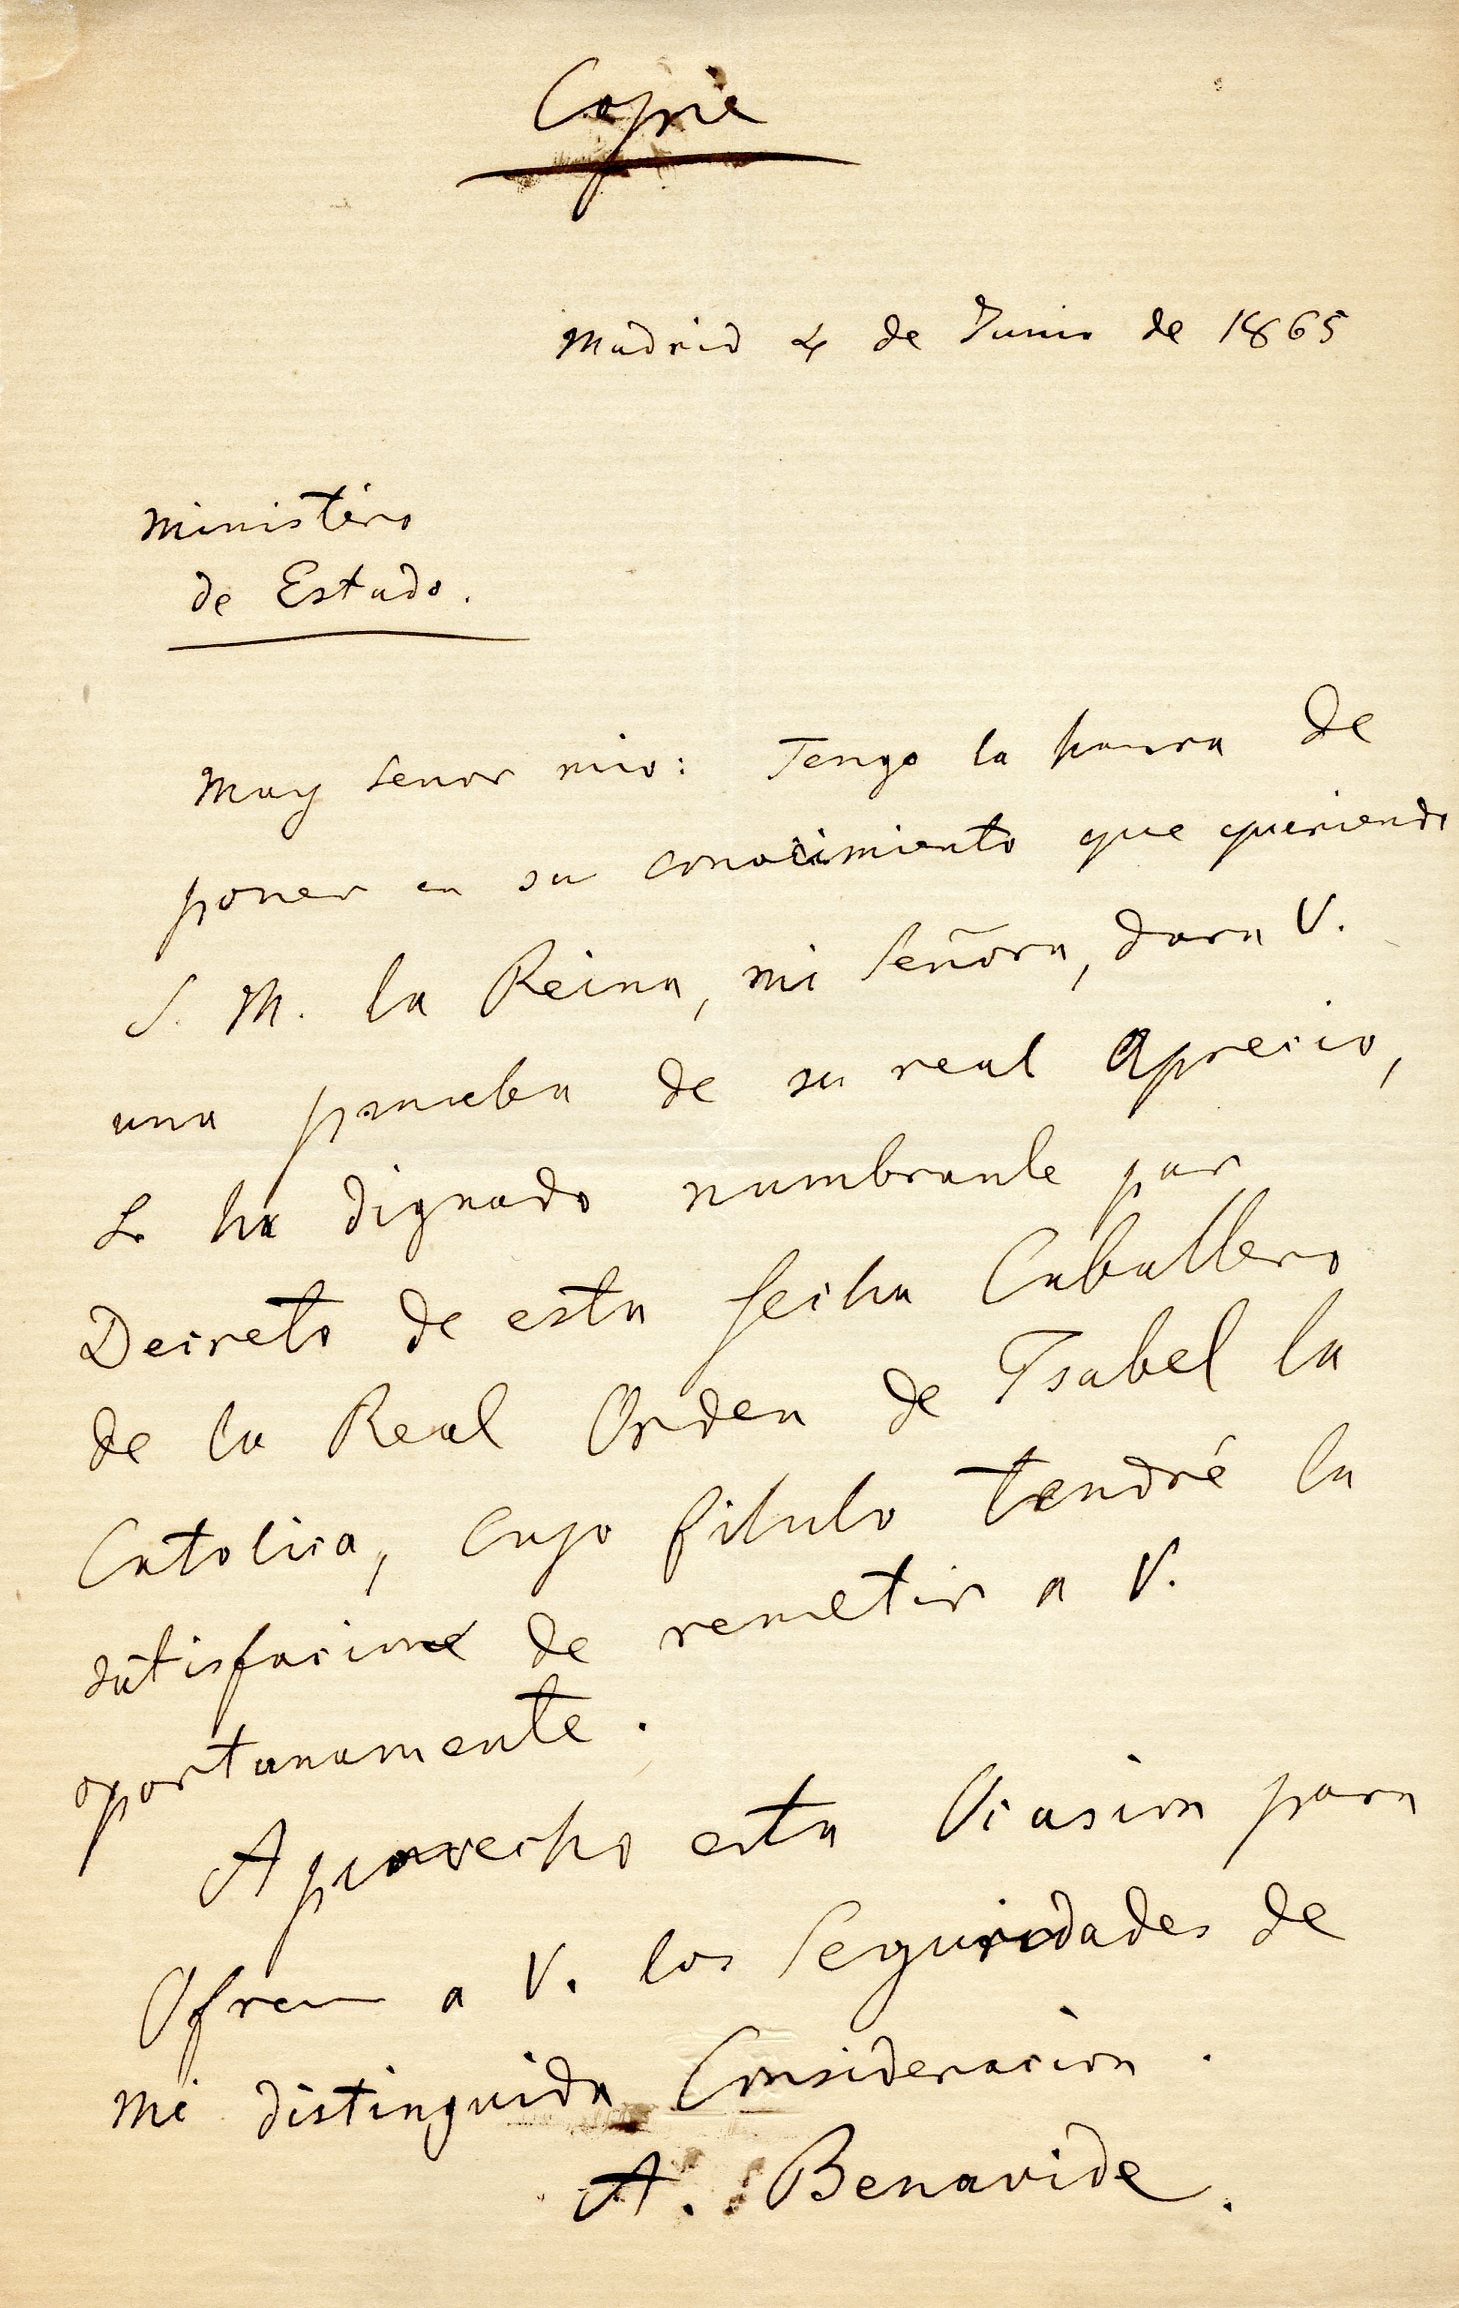 Copie
Madrid 4 de Junio de 1865
Ministerio
de Estado.
Muy Senor mio: Tengo la honra de
poner en su conocimiento que queriendo
S. M. la Reina, mi Señora, dara V.
una prueba de su real aprecio,
Se ha dignado nombrarle por
Decreto de esta fecha Caballero
de la Real Orden de Isabel la
Catolica, cuyo titulo tendré la
satisfacione de remetir a V.
oportunamente.
Aprovecho esta Ocasion para
Ofrecer a V. las Seguridades de
mi distinguida Consideracion.
A. Benavide.